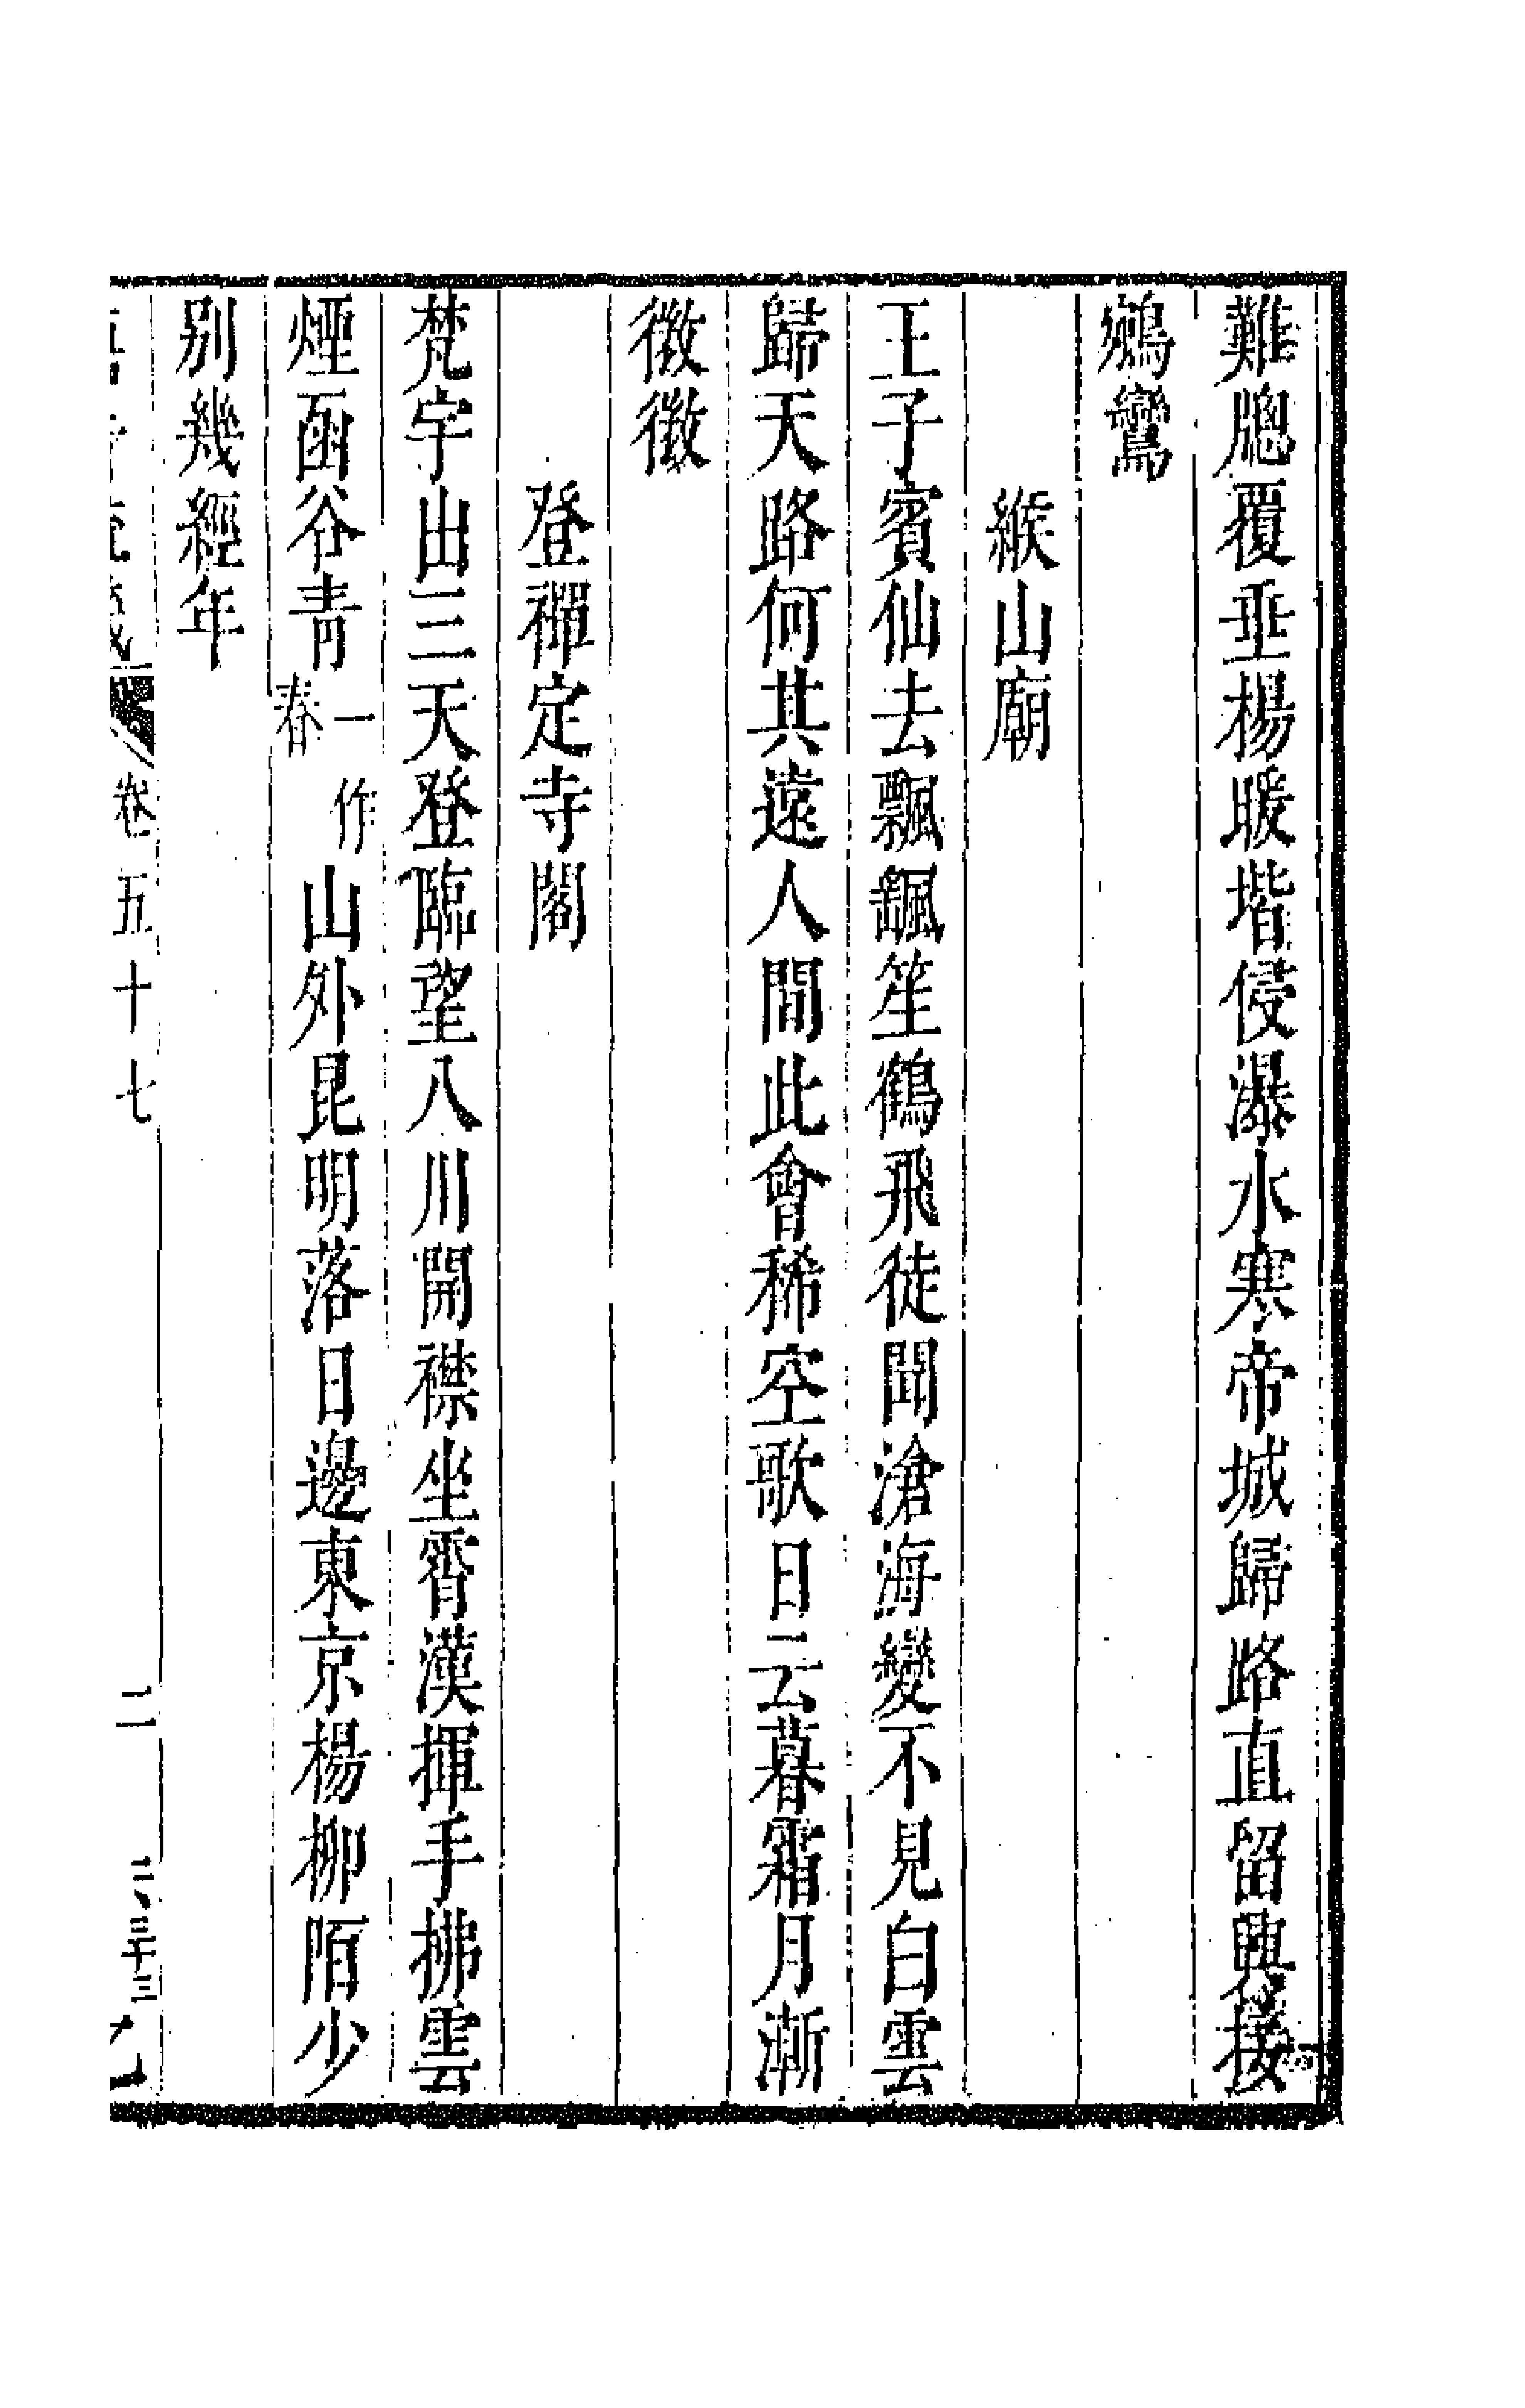 難牕覆垂楊暖堦侵瀑水寒帝城歸路直留興接
鵷鸞
緱山廟
王子賓仙去飄颻笙鶴飛徒聞滄海變不見白雲
歸天路何其遠人間此會稀空歌日云暮霜月漸
微微
登禪定寺閣
梵宇出三天登臨望八川開襟坐霄漢揮手拂雲
煙函谷青一作春山外昆明落日邊東京楊柳陌少
別幾經年
卷五十七 二